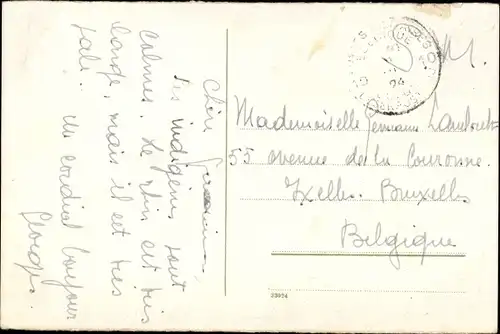 Chère Germaine
Les indigènes sont
calmes. Le Rhin est très
large, mais il est très
sale. Un cordial bonjour
Georges.
M.
Mademoiselle Germaine
55 avenue de la Couronne.
Ixelles. Bruxelles
Belgique
23024